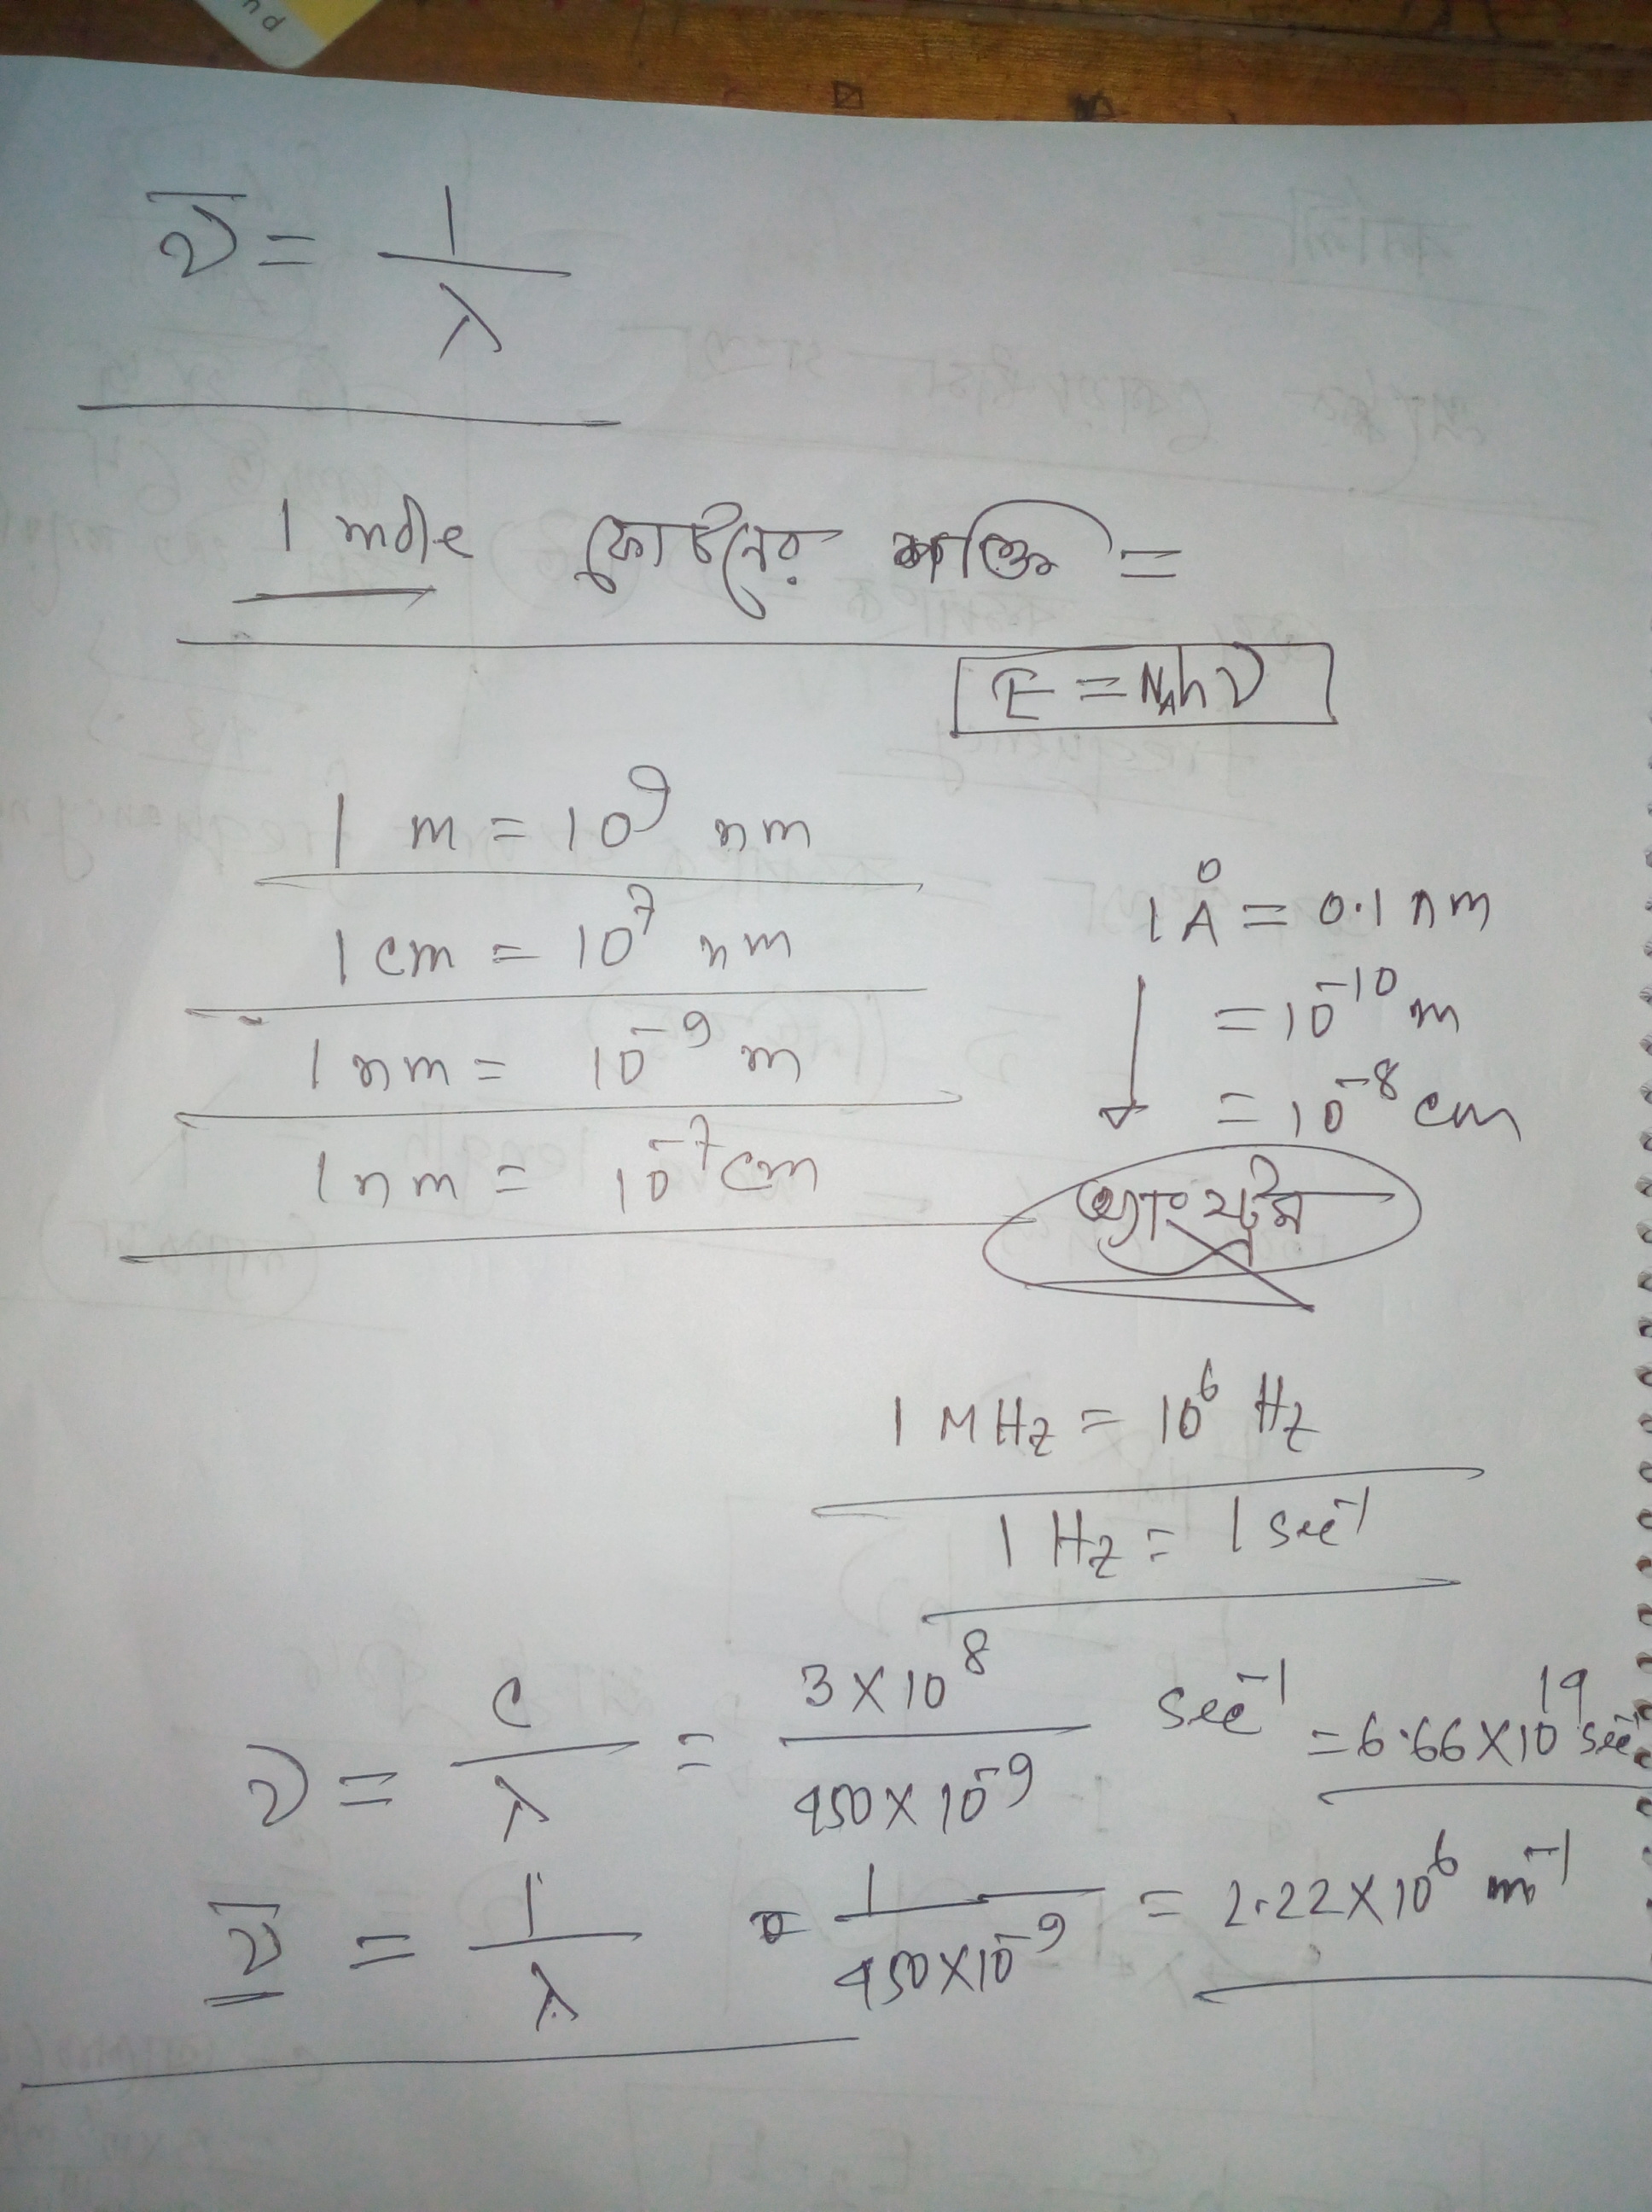 nd
ν̅ = 1/λ
1 mole ফোটনের শক্তি =
E = N_Ahν
1 m = 10⁹ nm
1 cm = 10⁷ nm
1 nm = 10⁻⁹ m
1 nm = 10⁻⁷ cm
1 Å = 0.1 nm
= 10⁻¹⁰ m
= 10⁻⁸ cm
অ্যাংস্ট্রম
1 MHz = 10⁶ Hz
1 Hz = 1 sec⁻¹
ν = c/λ = 3×10⁸/450×10⁻⁹ sec⁻¹ = 6.66×10¹⁹ sec⁻¹
ν̅ = 1/λ = 1/450×10⁻⁹ = 2.22×10⁶ m⁻¹